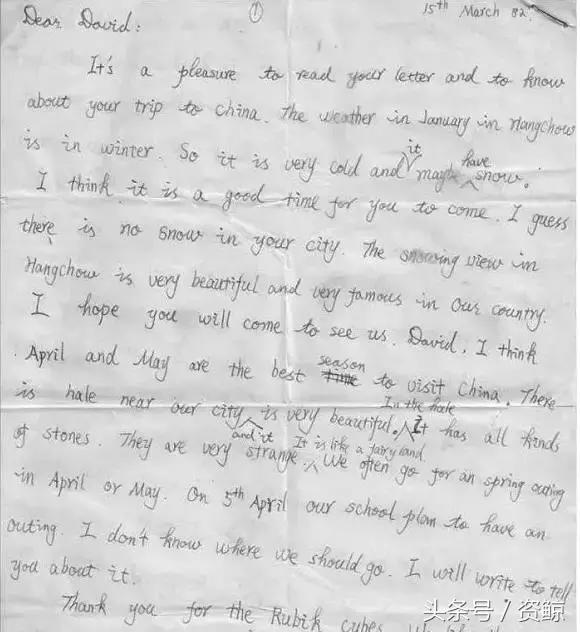 ①
15th March 82.
Dear David:
It's a pleasure to read your letter and to know
about your trip to China. The weather in January in Hangchow
is in winter. So it is very cold and it maybe have snow.
I think it is a good time for you to come. I guess
there is no snow in your city. The snowing view in
Hangchow is very beautiful and very famous in our country.
I hope you will come to see us. David, I think
April and May are the best season to visit China. There
is hale near our city and it is very beautiful. In the hale It has all kinds
of stones. They are very strange. It is like a fairy land. We often go for an spring outing
in April or May. On 5th April our school plan to have an
outing. I don't know where we should go. I will write to tell
you about it.
Thank you for the Rubik cubes
头条号 / 资鲸